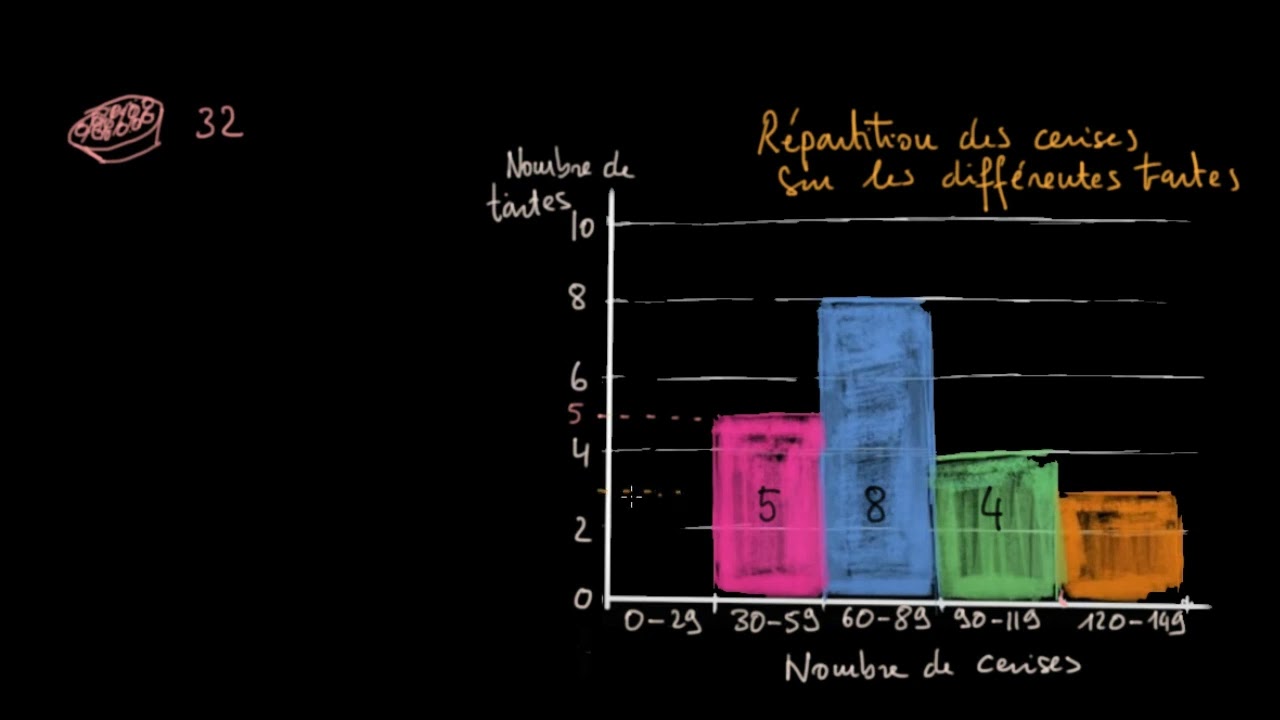 32
Répartition des cerises
sur les différentes tartes
Nombre de
tartes
10
8
6
5
4
2
0
5
8
4
0-29 30-59 60-89 90-119 120-149
Nombre de cerises